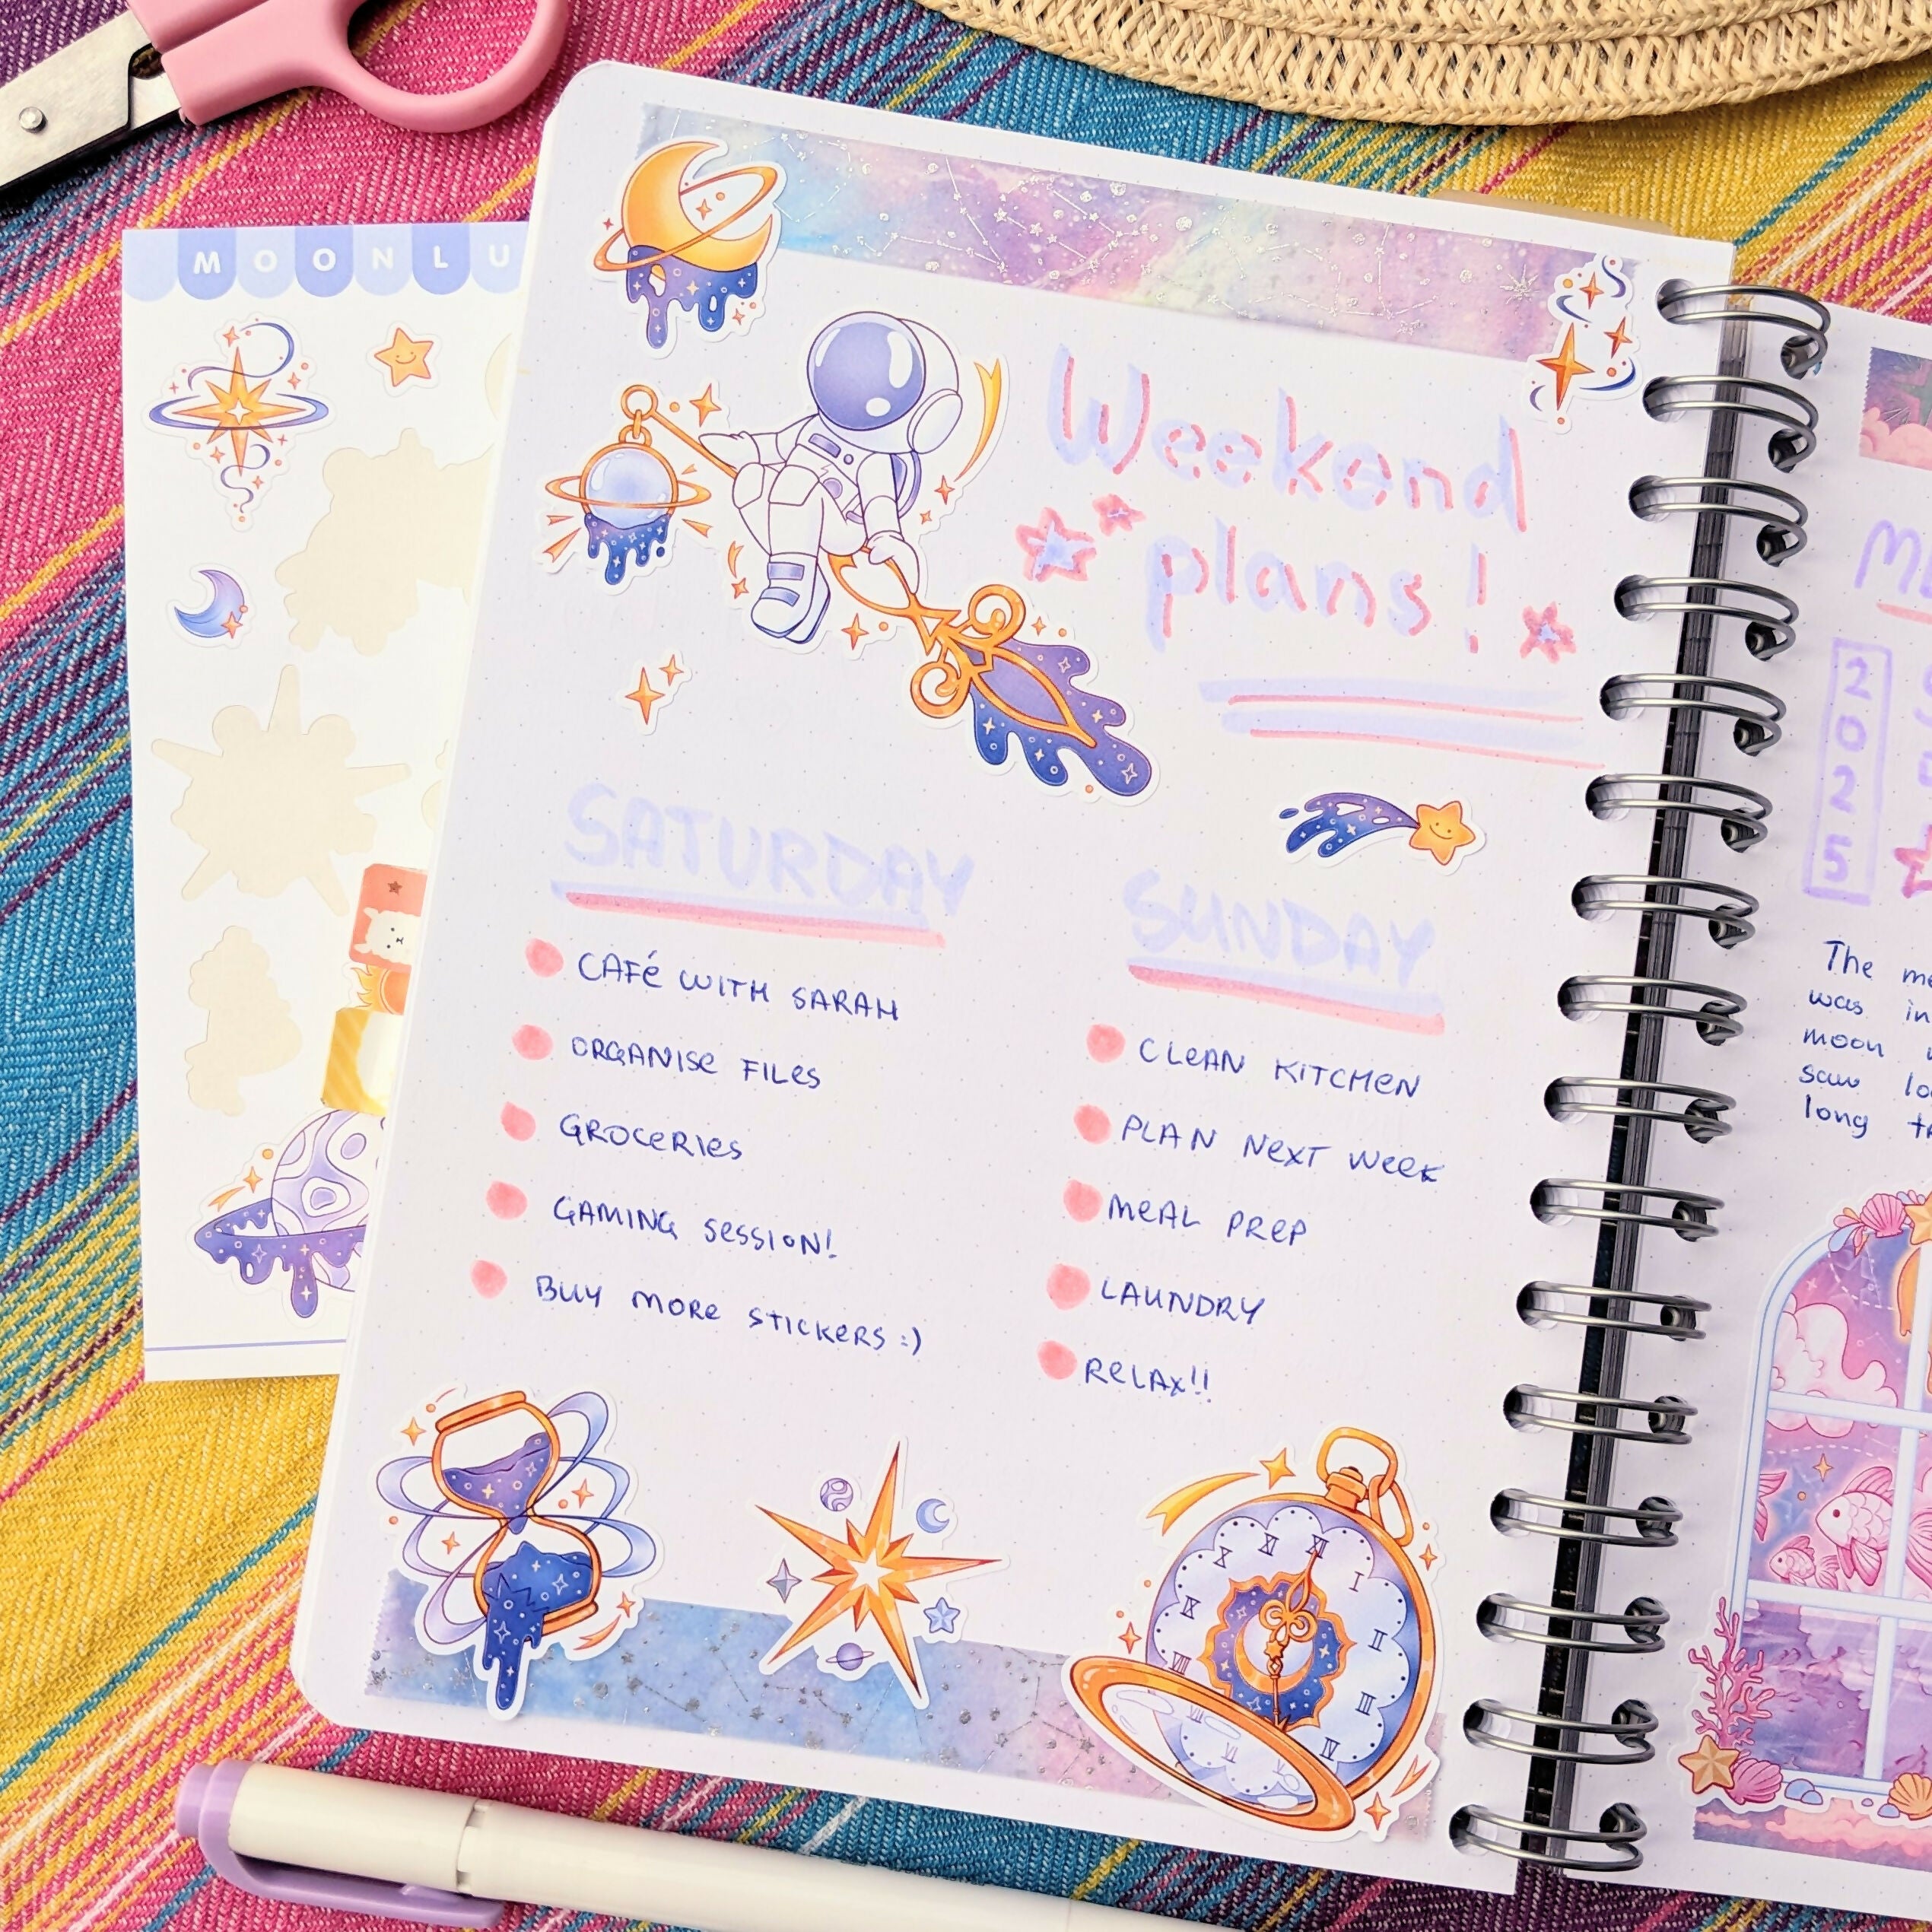 MOONLU
Weekend
plans!
SATURDAY
CAFé WITH SARAH
ORGANISe FILes
GROCeRIes
GAMING SessION!
BUY MORe STICKeRS :)
SUNDAY
CLeAN KITCHeN
PLAN NeXT Week
MeAL PReP
LAUNDRY
ReLAX!!
2
0
2
5
The
was in
moon
saw
long
X
XI
XII
I
IX
II
VIII
III
IV
VII
VI